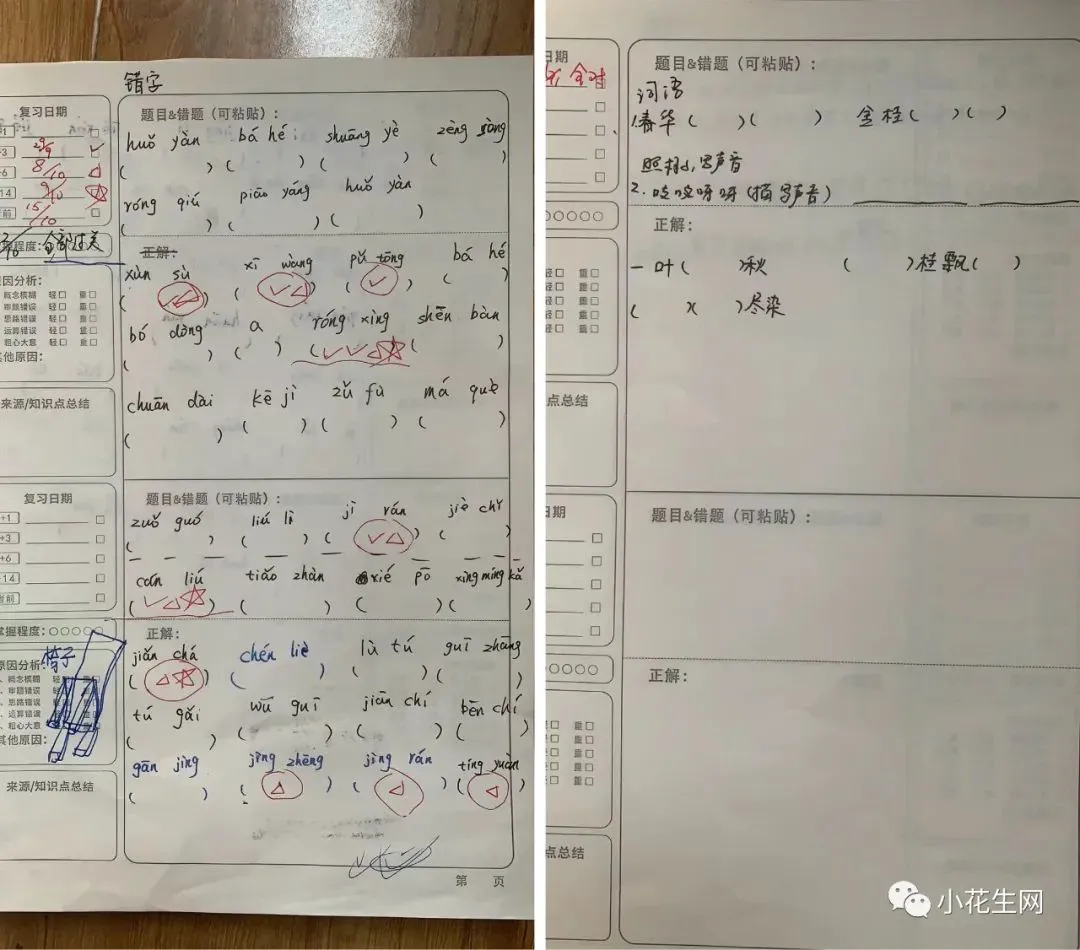 错字
复习日期
+3
8/10
+6
9/10
14
15/10
全部过关
题目&错题（可粘贴）：
huǒ yàn bá hé shuāng yè zèng sòng
( ) ( ) ( ) ( )
róng qiú piāo yáng huǒ yàn
( ) ( ) ( )
正解：
xùn sù xī wàng pǔ tōng bá hé
( ) ( ) ( ) ( )
bó dòng a róng xìng shēn bàn
( ) ( ) ( ) ( )
chuān dài kē jì zǔ fù má què
( ) ( ) ( ) ( )
原因分析：
概念模糊 轻□ 重□
审题错误 轻□ 重□
思路错误 轻□ 重□
运算错误 轻□ 重□
粗心大意 轻□ 重□
其他原因：
来源/知识点总结
复习日期
+1
+3
+6
+14
题目&错题（可粘贴）：
zuǒ guó liú lì jì rán jiè chǐ
( ) ( ) ( ) ( )
cán liú tiǎo zhàn xié pō xìng míng kǎ
( ) ( ) ( ) ( )
掌握程度：○○○○○
正解：
jiǎn chá chén liè lǜ tú guī zhāng
( ) ( ) ( ) ( )
tú gǎi wū guī jiān chí bēn chí
( ) ( ) ( ) ( )
gān jìng jìng zhēng jìng rán tíng yuàn
( ) ( ) ( ) ( )
原因分析：
概念模糊
审题错误
思路错误
运算错误
粗心大意
其他原因：
来源/知识点总结
第 页
日期
全对
题目&错题（可粘贴）：
词语
1.春华( )( ) 金桂( )( )
照样小写声音
2.吱吱呀呀(描写声音)
正解：
一叶( )秋 ( )桂飘( )
( )( )尽染
轻□ 重□
轻□ 重□
轻□ 重□
轻□ 重□
轻□ 重□
点总结
日期
题目&错题（可粘贴）：
○○○○
正解：
□ 重□
□ 重□
□ 重□
□ 重□
□ 重□
点总结
小花生网